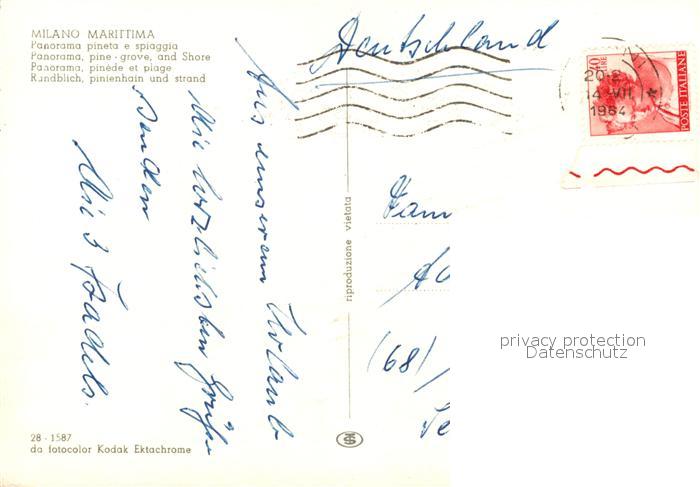 MILANO MARITTIMA
Panorama pineta e spiaggia
Panorama, pine-grove, and Shore
Panorama, pinède et plage
Rundblich, pinienhain und strand
Aus unserem Urlaub
die herzlichsten Grüße
senden
die 3
28 - 1587
da fotocolor Kodak Ektachrome
riproduzione vietata
Deutschland
20-
14 VII
1964
40
POSTE ITALIANE
Fam
(68)
privacy protection
Datenschutz